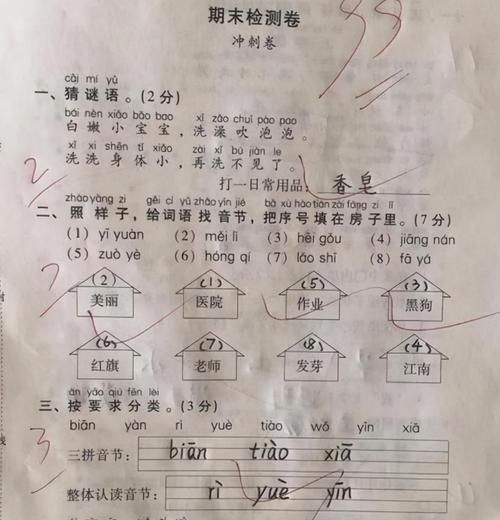 期末检测卷
99
冲刺卷
cāi mí yǔ
一、猜谜语。(2分)
bái nèn xiǎo bǎo bao xǐ zǎo chuī pào pao
白嫩小宝宝，洗澡吹泡泡。
xǐ xǐ shēn tǐ xiǎo zài xǐ bú jiàn le
洗洗身体小，再洗不见了。
2
打一日常用品： 香皂
zhào yàng zi gěi cí yǔ zhǎo yīn jié bǎ xù hào tián zài fáng zi lǐ
二、照样子，给词语找音节，把序号填在房子里。(7分)
(1) yī yuàn (2) měi lì (3) hēi gǒu (4) jiāng nán
(5) zuò yè (6) hóng qí (7) lǎo shī (8) fā yá
7
(2) (1) (5) (3)
美丽 医院 作业 黑狗
(6) (7) (8) (4)
红旗 老师 发芽 江南
àn yāo qiú fēn lèi
三、按要求分类。(3分)
biān yàn rì yuè tiào wǒ yīn xiā
3
三拼音节： biān tiào xiā
整体认读音节： rì yuè yīn